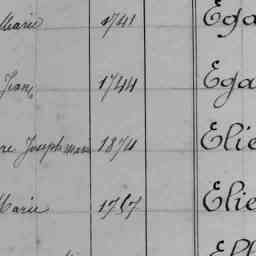 Marie 1741 Ega
Jean 1744 Ega
re Joseph marie 1874 Elie
Marie 1757 Elie